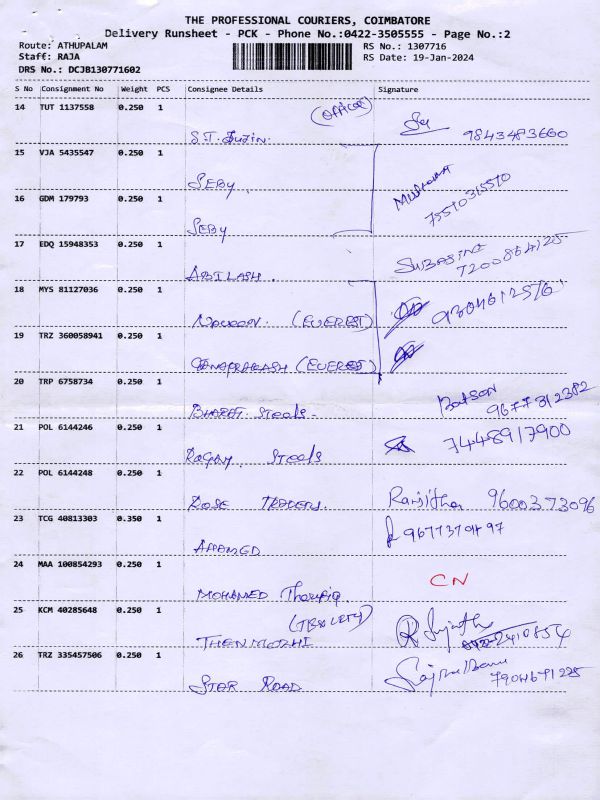 THE PROFESSIONAL COURIERS, COIMBATORE
Delivery Runsheet - PCK - Phone No.:0422-3505555 - Page No.:2
Route: ATHUPALAM
Staff: RAJA
DRS No.: DCJB130771602
RS No.: 1307716
RS Date: 19-Jan-2024
S No Consignment No Weight PCS Consignee Details Signature
14 TUT 1137558 0.250 1 (OFFICE)
S.T. 9843483660
15 VJA 5435547 0.250 1
SEBY
16 GDM 179793 0.250 1 7551035510
SEBY
17 EDQ 15948353 0.250 1 SUBASINI
ABILASH. 7200864125
18 MYS 81127036 0.250 1
(EVEREST)
19 TRZ 360058941 0.250 1
(EVEREST)
20 TRP 6758734 0.250 1
BHARAT Steels 9677312382
21 POL 6144246 0.250 1 7448917900
Steels
22 POL 6144248 0.250 1
ROSE TRADERS. Ranjitha 9600373096
23 TCG 40813303 0.350 1
24 MAA 100854293 0.250 1 CN
MOHAMED
25 KCM 40285648 0.250 1
THENMOZHI
26 TRZ 335457506 0.250 1
STAR ROAD 7904671225